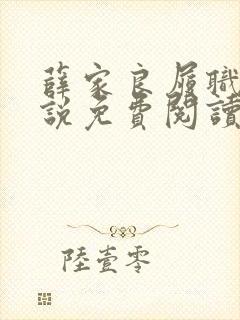 薛家良履職
說免費閱讀
陸壹零